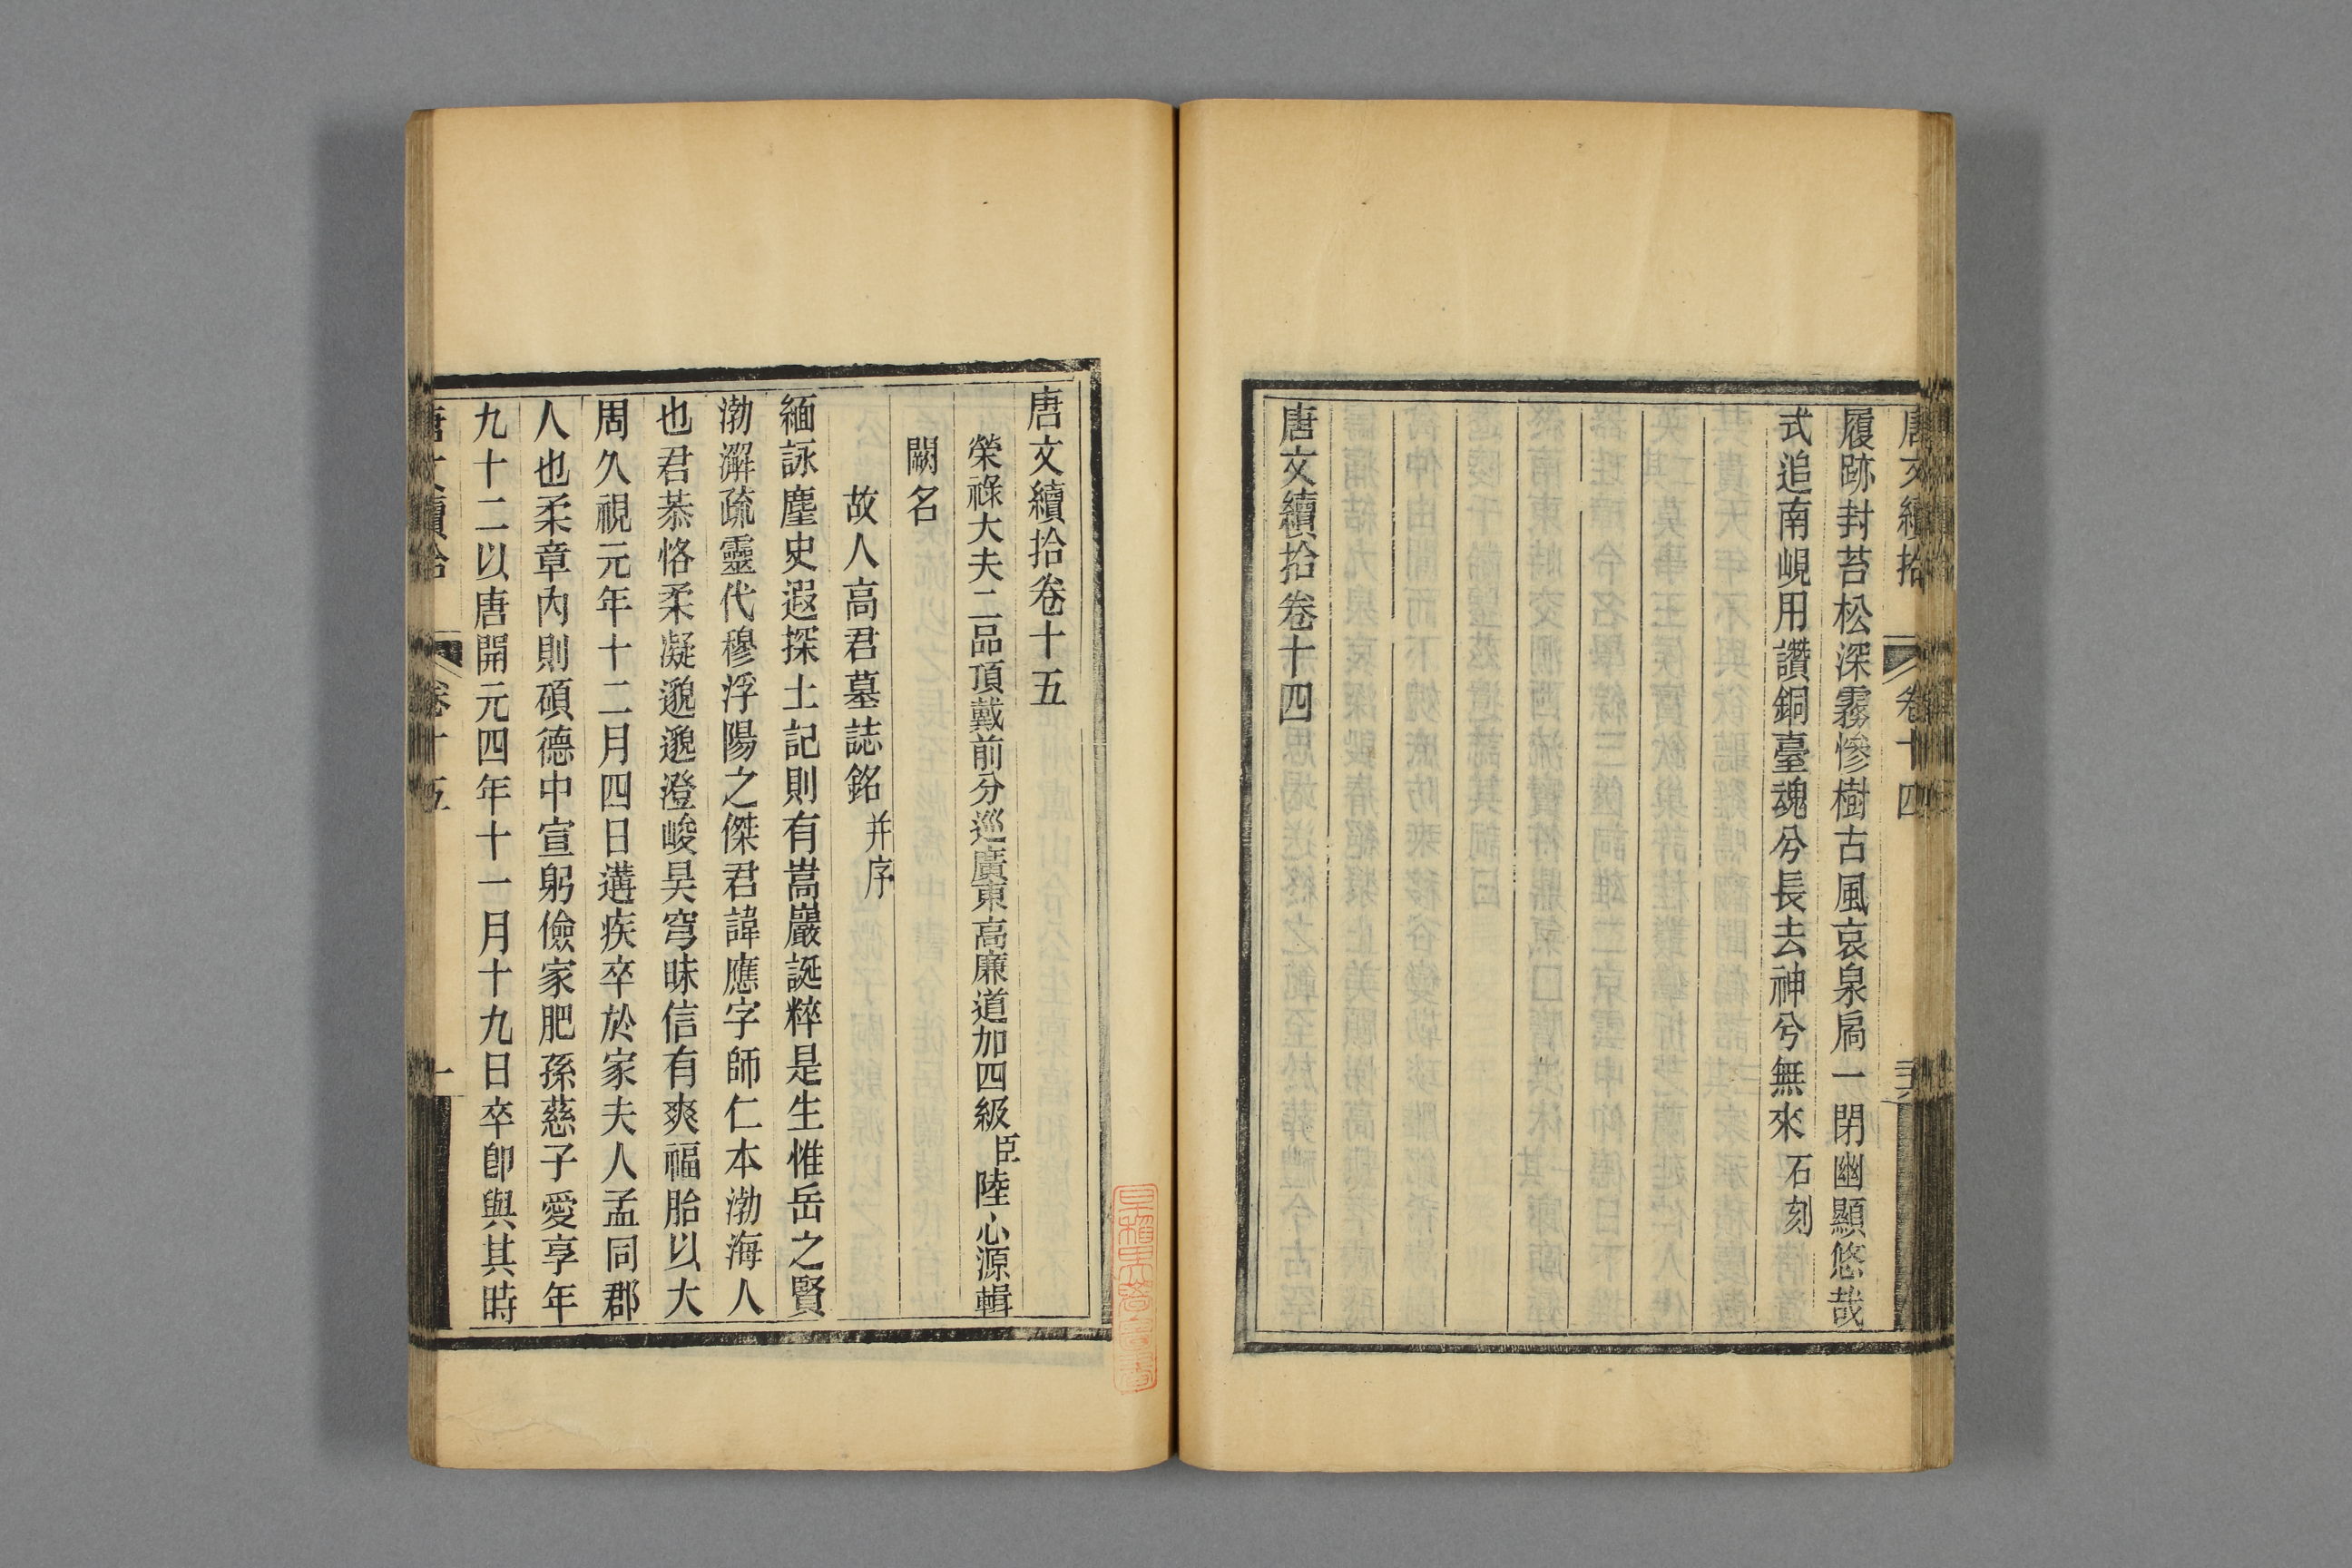 履跡封苔松深霧慘樹古風哀泉扃一閉幽顯悠哉
式追南峴用讚銅臺魂兮長去神兮無來 石刻
唐文續拾卷十四
唐文續拾 卷十四
唐文續拾卷十五
榮祿大夫二品頂戴前分巡廣東高廉道加四級臣陸心源輯
闕名
故人高君墓誌銘 并序
緬詠塵史遐探土記則有嵩巖誕粹是生惟岳之賢
渤澥疏靈代穆浮陽之傑君諱應字師仁本渤海人
也君恭恪柔凝邈邈澄峻昊穹昧信有爽福胎以大
周久視元年十二月四日遘疾卒於家夫人孟同郡
人也柔章內則碩德中宣躬儉家肥孫慈子愛享年
九十二以唐開元四年十一月十九日卒卽與其時
唐文續拾 卷十五 一